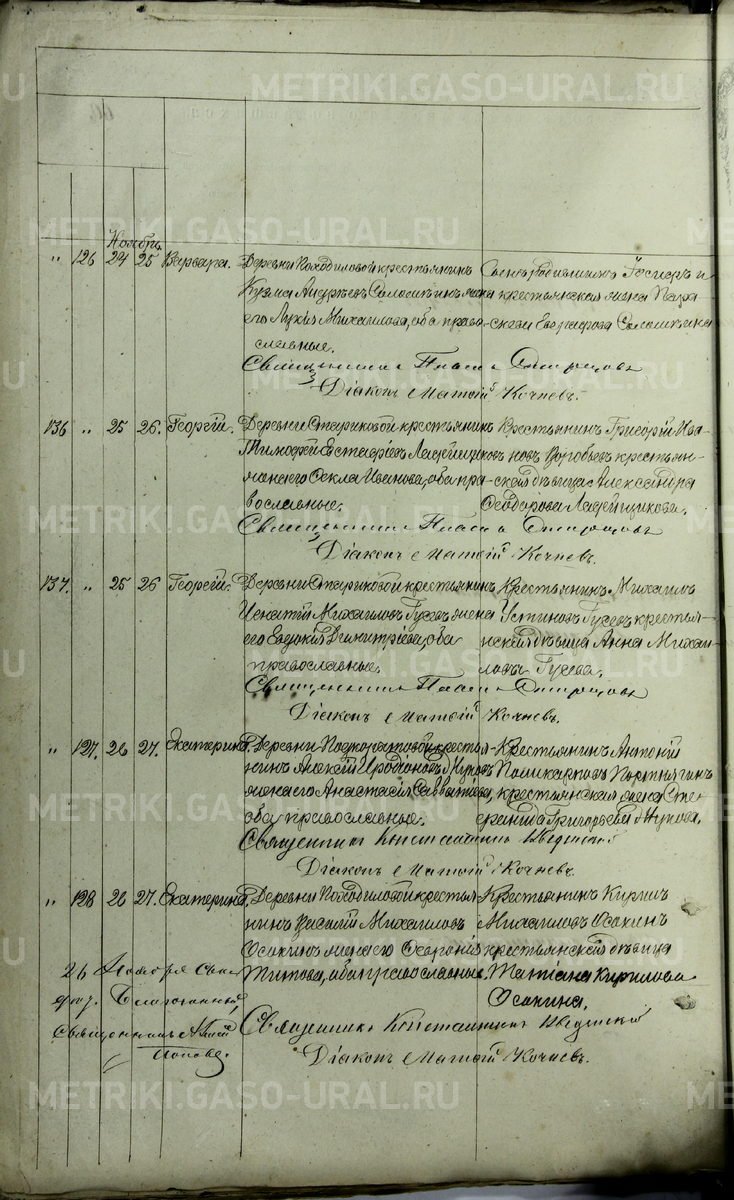 METRIKI.GASO-URAL.RU
Ноябрь.
„ 126 24 25 Варвара. Деревни Походиловой крестьянинъ
Кузма Андрѣевъ Соломѣинъ жена
его Лукія Михаилова, оба право-
славные.
крестьянская жена Пара-
скева Соломѣина
Священникъ
Діаконъ Матѳій Кочневъ.
136 „ 25 26. Георгій. Деревни Стариковой крестьянинъ
Тимофей Естафіевъ Ладейщиковъ
жена его Ѳекла Иванова, оба пра-
вославные.
Крестьянинъ Григорій Ива-
новъ Воробьевъ крестьян-
ская дѣвица Александра
Ѳеодорова Ладейщикова.
Священникъ
Діаконъ Матѳій Кочневъ.
137. „ 25 26 Георгій. Деревни Стариковой крестьянинъ
Игнатій Михаиловъ Гусевъ жена
его Евдокія Димитріева, оба
православные.
Крестьянинъ Михаилъ
Устиновъ Гусевъ крестья-
нская дѣвица Анна Михаи-
лова Гусева.
Священникъ
Діаконъ Матѳій Кочневъ.
„ 127. 26 27. Екатерина. Деревни крестья-
нинъ Алексій Иродіоновъ Жуковъ
жена его Анастасія Савватіева,
оба православные.
Крестьянинъ Антоній
Поликарповъ Портнягинъ
крестьянская жена Сте-
фанида Григорьева Жукова.
Священникъ Константинъ Введенскій
Діаконъ Матѳій Кочневъ.
„ 128 26 27. Екатерина. Деревни Походиловой крестья-
нинъ Василій Михаиловъ
Осокинъ жена его
Титова, оба православные.
Крестьянинъ Кирилъ
Михаиловъ Осокинъ
крестьянская дѣвица
Татіана Кирилова
Осокина.
Священникъ Константинъ Введенскій
Діаконъ Матѳій Кочневъ.
26 Ноября
Благочинный,
Священникъ
Поповъ.